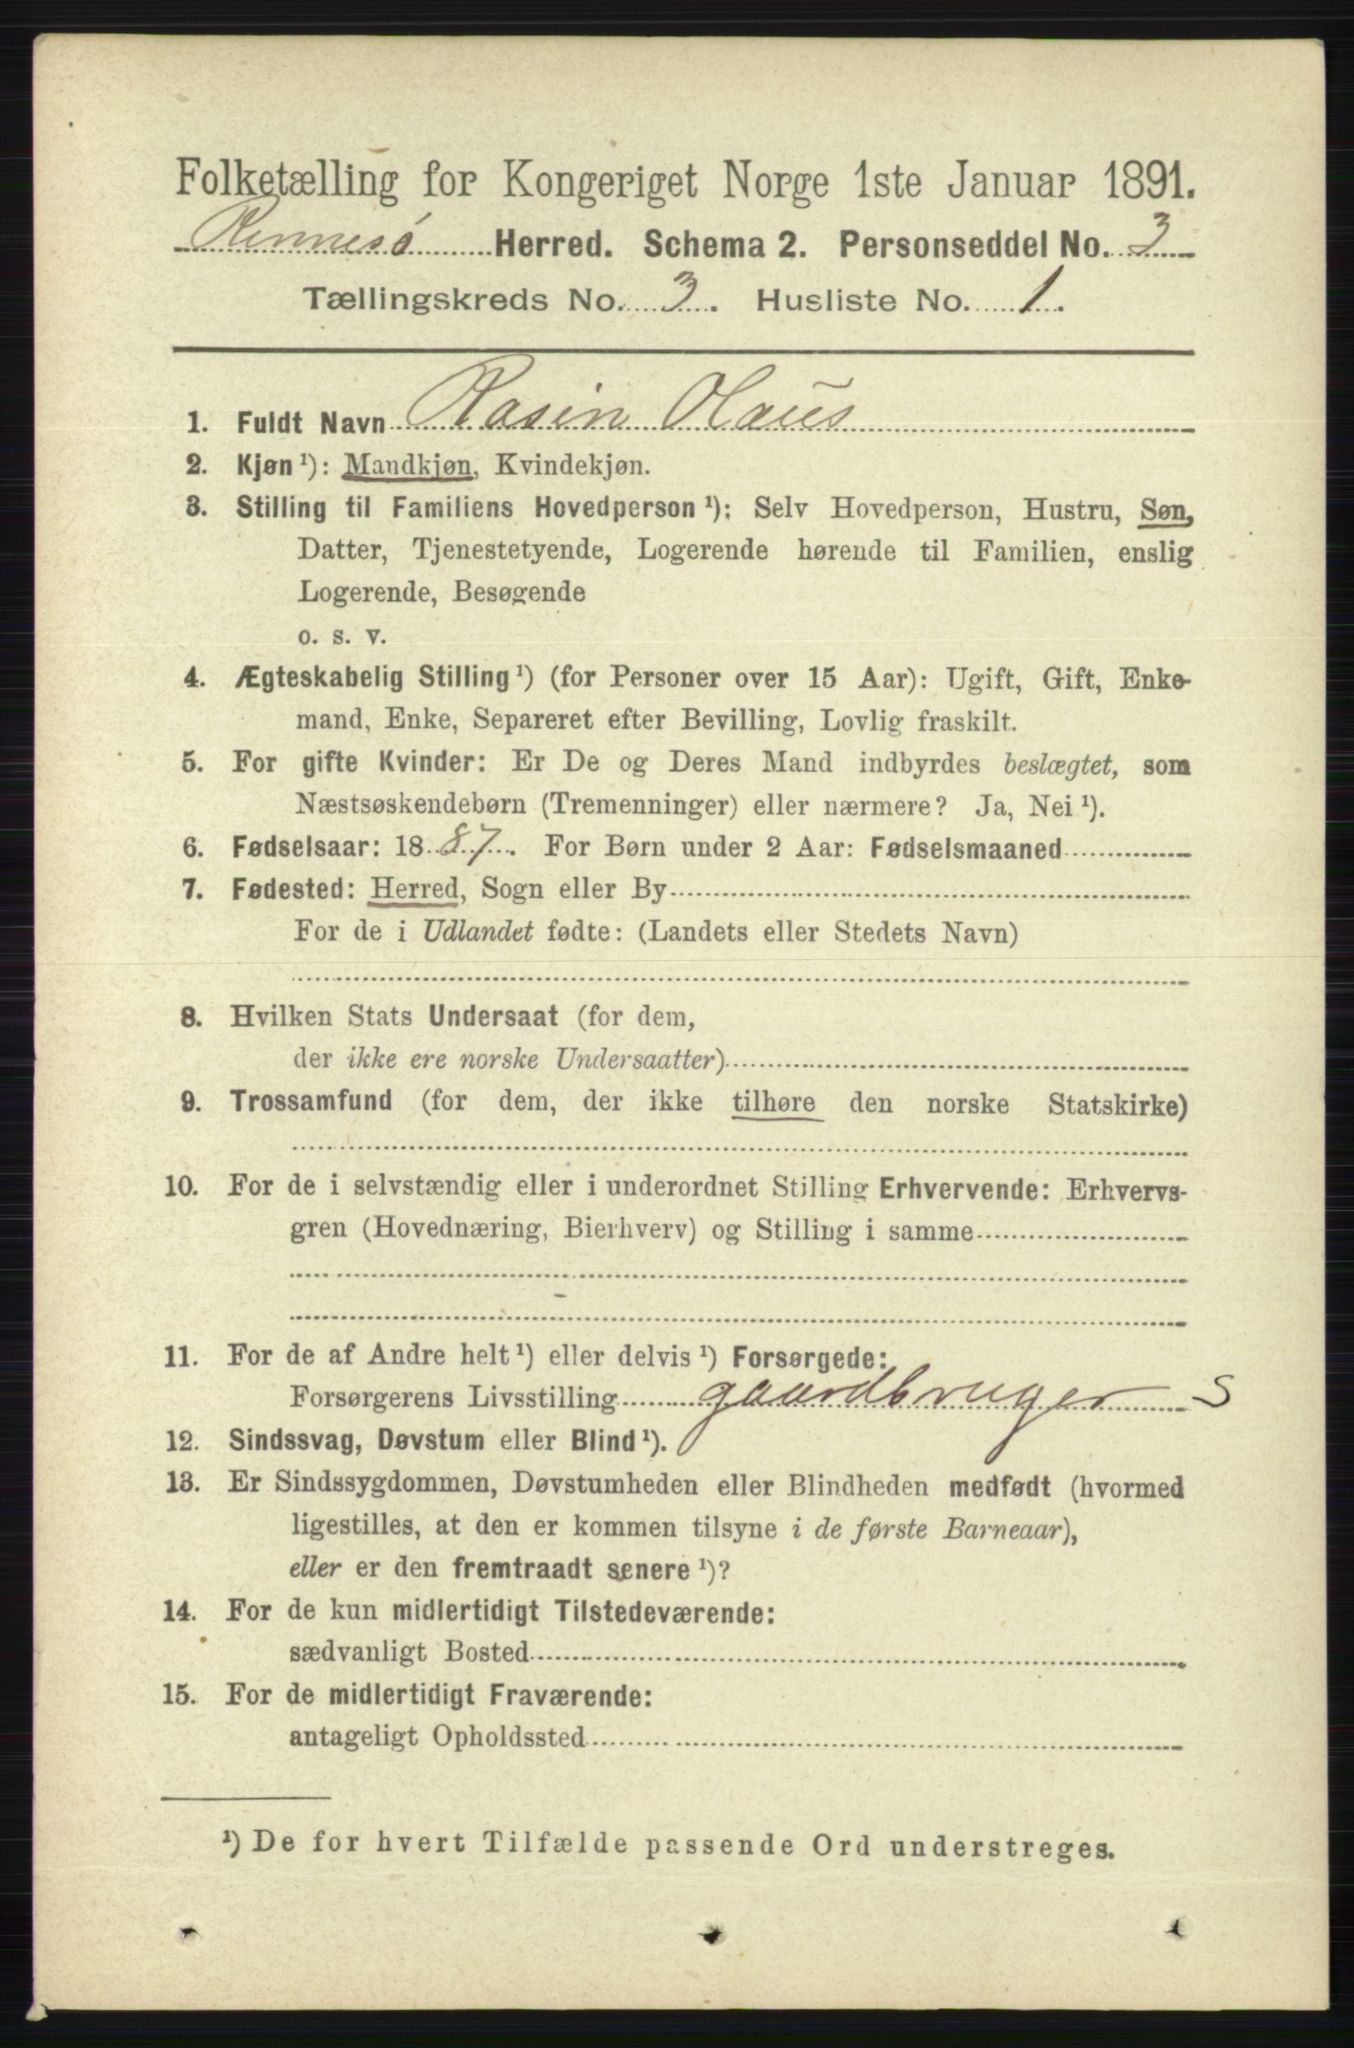 Folketælling for Kongeriget Norge 1ste Januar 1891.
Rennesö Herred. Schema 2. Personseddel No. 3
Tællingskreds No. 3. Husliste No. 1.
1. Fuldt Navn Rasin Olaus
2. Kjøn ¹): Mandkjøn, Kvindekjøn.
3. Stilling til Familiens Hovedperson ¹): Selv Hovedperson, Hustru, Søn,
Datter, Tjenestetyende, Logerende hørende til Familien, enslig
Logerende, Besøgende
o. s. v.
4. Ægteskabelig Stilling ¹) (for Personer over 15 Aar): Ugift, Gift, Enke-
mand, Enke, Separeret efter Bevilling, Lovlig fraskilt.
5. For gifte Kvinder: Er De og Deres Mand indbyrdes beslægtet, som
Næstsøskendebørn (Tremenninger) eller nærmere? Ja, Nei ¹).
6. Fødselsaar: 1887. For Børn under 2 Aar: Fødselsmaaned
7. Fødested: Herred, Sogn eller By
For de i Udlandet fødte: (Landets eller Stedets Navn)
8. Hvilken Stats Undersaat (for dem,
der ikke ere norske Undersaatter)
9. Trossamfund (for dem, der ikke tilhøre den norske Statskirke)
10. For de i selvstændig eller i underordnet Stilling Erhvervende: Erhvervs-
gren (Hovednæring, Bierhverv) og Stilling i samme
11. For de af Andre helt ¹) eller delvis ¹) Forsørgede:
Forsørgerens Livsstilling gaardbruger S
12. Sindssvag, Døvstum eller Blind ¹).
13. Er Sindssygdommen, Døvstumheden eller Blindheden medfødt (hvormed
ligestilles, at den er kommen tilsyne i de første Barneaar),
eller er den fremtraadt senere ¹)?
14. For de kun midlertidigt Tilstedeværende:
sædvanligt Bosted
15. For de midlertidigt Fraværende:
antageligt Opholdssted
¹) De for hvert Tilfælde passende Ord understreges.